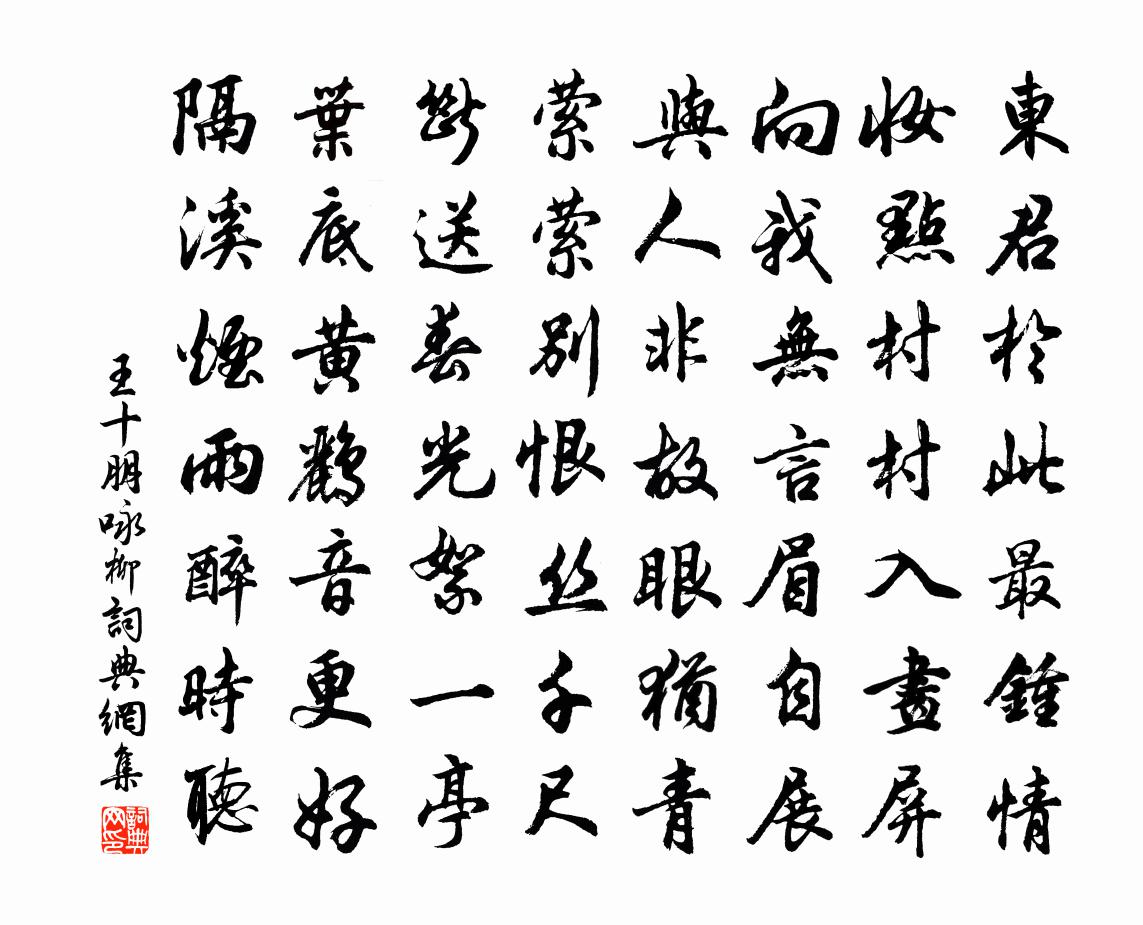 東君於此最鍾情
妝點村村入畫屏
向我無言眉自展
與人非故眼猶青
縈縈別恨丝千尺
斷送春光絮一亭
葉底黃鸝音更好
隔溪煙雨醉時聽
王十朋咏柳詞典網集
詞典網印